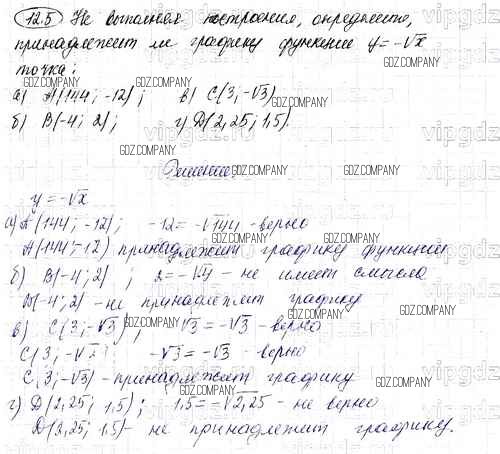 12.5 Не выполняя построения, определите,
принадлежит ли графику функции y=-√x
точка:
а) A(144; -12); в) C(3; -√3)
б) B(-4; 2); г) D(2,25; 1,5).
Решение.
y=-√x
а) A(144; -12); -12=-√144 -верно
A(144; -12) принадлежит графику функции
б) B(-4; 2) ; 2=-√-4 - не имеет смысла
B(-4; 2) -не принадлежит графику
в) C(3; -√3); -√3=-√3 -верно
C(3; -√3) -√3=-√3 -верно
C(3; -√3) -принадлежит графику
г) D(2,25; 1,5); 1,5=-√2,25 - не верно
D(2,25; 1,5)- не принадлежит графику.
GDZ.COMPANY
vipgdz